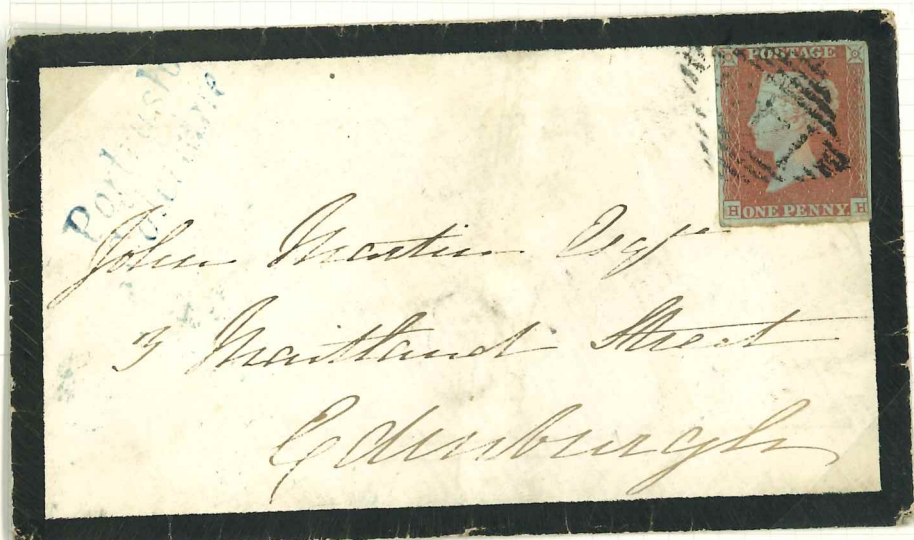 Portrush
POSTAGE
ONE PENNY
H H
John Martin Esqre
3 Maitland Street
Edinburgh